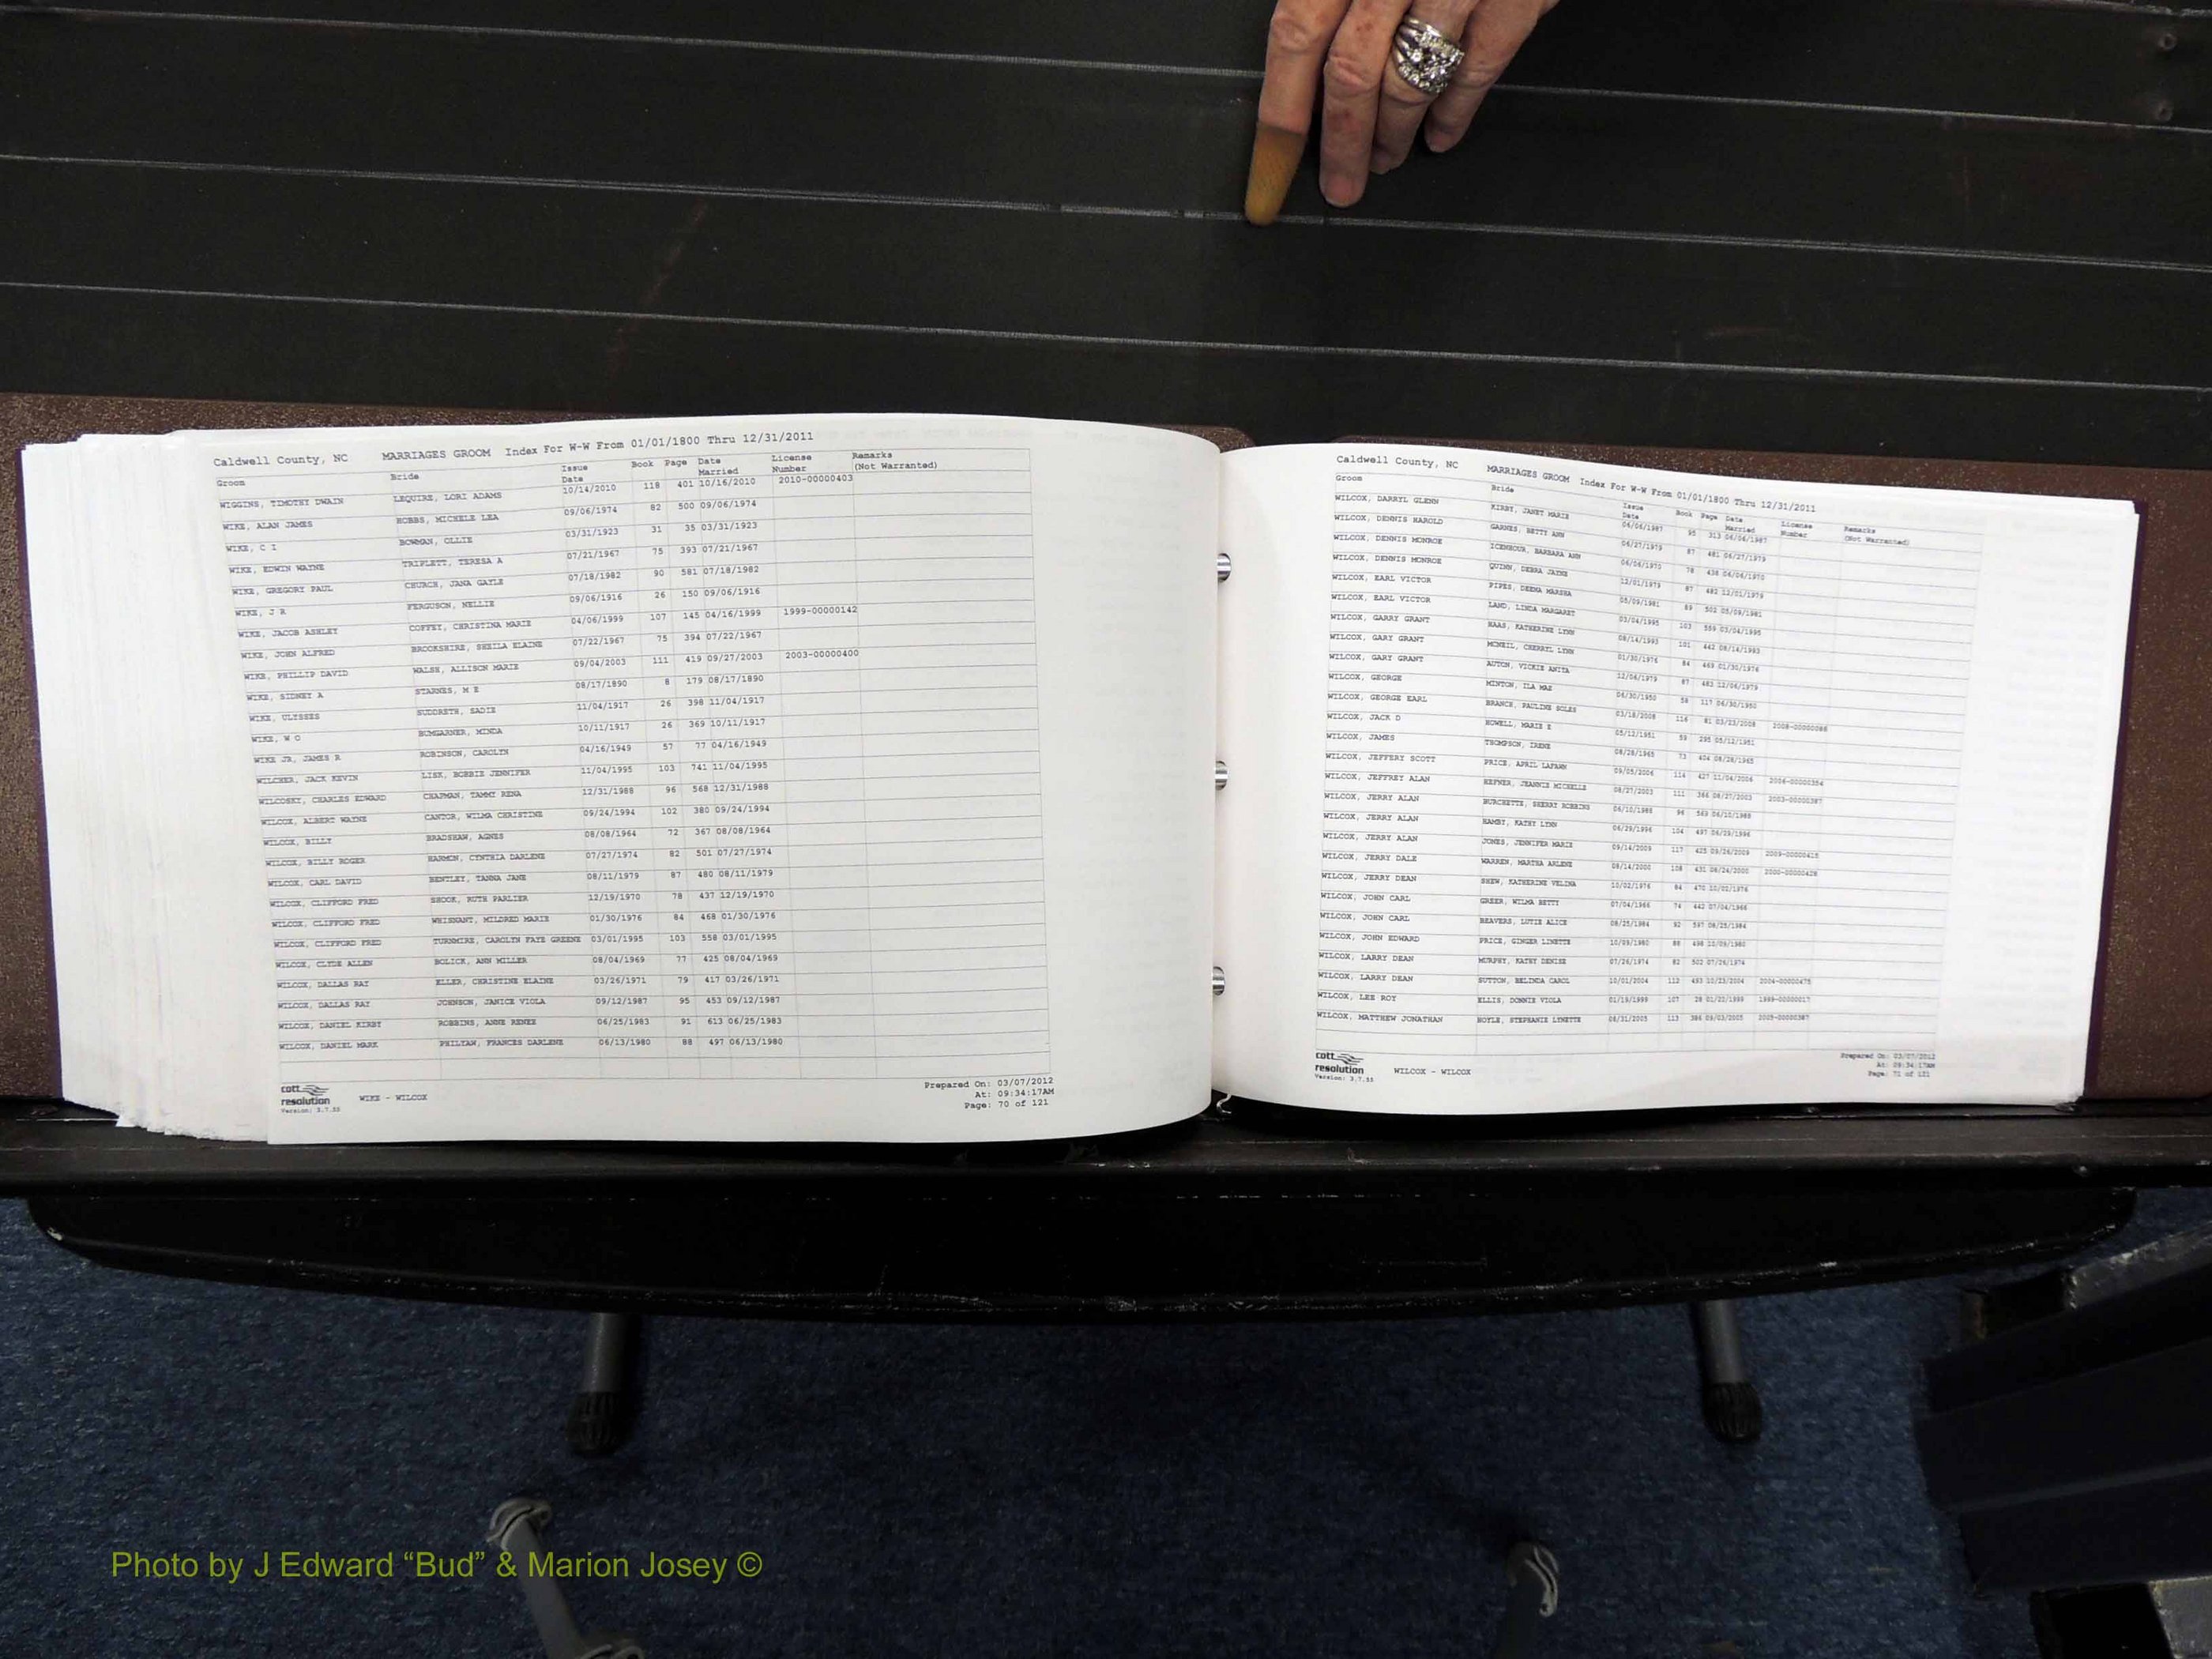 Caldwell County, NC MARRIAGES GROOM Index For W-W From 01/01/1800 Thru 12/31/2011
Groom Bride Issue Date Book Page Date Married License Number Remarks (Not Warranted)
WIGGINS, TIMOTHY DWAIN LEQUIRE, LORI ADAMS 10/14/2010 118 401 10/16/2010 2010-00000403
WIKE, ALAN JAMES HOBBS, MICHELE LEA 09/06/1974 82 500 09/06/1974
WIKE, C I BOWMAN, OLLIE 03/31/1923 31 35 03/31/1923
WIKE, EDWIN WAYNE TRIPLETT, TERESA A 07/21/1967 75 393 07/21/1967
WIKE, GREGORY PAUL CHURCH, JANA GAYLE 07/18/1982 90 581 07/18/1982
WIKE, J R FERGUSON, NELLIE 09/06/1916 26 150 09/06/1916
WIKE, JACOB ASHLEY COFFEY, CHRISTINA MARIE 04/06/1999 107 145 04/16/1999 1999-00000142
WIKE, JOHN ALFRED BROOKSHIRE, SHEILA ELAINE 07/22/1967 75 394 07/22/1967
WIKE, PHILLIP DAVID WALSH, ALLISON MARIE 09/04/2003 111 419 09/27/2003 2003-00000400
WIKE, SIDNEY A STARNES, M E 08/17/1890 8 179 08/17/1890
WIKE, ULYSSES SUDDRETH, SADIE 11/04/1917 26 398 11/04/1917
WIKE, W O BUMGARNER, MINDA 10/11/1917 26 369 10/11/1917
WIKE JR, JAMES R ROBINSON, CAROLYN 04/16/1949 57 77 04/16/1949
WILCHER, JACK KEVIN LISK, BOBBIE JENNIFER 11/04/1995 103 741 11/04/1995
WILCOSKY, CHARLES EDWARD CHAPMAN, TAMMY RENA 12/31/1988 96 568 12/31/1988
WILCOX, ALBERT WAYNE CANTOR, WILMA CHRISTINE 09/24/1994 102 380 09/24/1994
WILCOX, BILLY BRADSHAW, AGNES 08/08/1964 72 367 08/08/1964
WILCOX, BILLY ROGER HARMON, CYNTHIA DARLENE 07/27/1974 82 501 07/27/1974
WILCOX, CARL DAVID BENTLEY, TANNA JANE 08/11/1979 87 480 08/11/1979
WILCOX, CLIFFORD FRED SHOOK, RUTH PARLIER 12/19/1970 78 437 12/19/1970
WILCOX, CLIFFORD FRED WHISNANT, MILDRED MARIE 01/30/1976 84 468 01/30/1976
WILCOX, CLIFFORD FRED TURNMIRE, CAROLYN FAYE GREENE 03/01/1995 103 558 03/01/1995
WILCOX, CLYDE ALLEN BOLICK, ANN MILLER 08/04/1969 77 425 08/04/1969
WILCOX, DALLAS RAY ELLER, CHRISTINE ELAINE 03/26/1971 79 417 03/26/1971
WILCOX, DALLAS RAY JOHNSON, JANICE VIOLA 09/12/1987 95 453 09/12/1987
WILCOX, DANIEL KIRBY ROBBINS, ANNE RENEE 06/25/1983 91 613 06/25/1983
WILCOX, DANIEL MARK PHILYAW, FRANCES DARLENE 06/13/1980 88 497 06/13/1980
cott resolution
Version: 3.7.55
WIKE - WILCOX
Prepared On: 03/07/2012
At: 09:34:17AM
Page: 70 of 121
Caldwell County, NC MARRIAGES GROOM Index For W-W From 01/01/1800 Thru 12/31/2011
Groom Bride Issue Date Book Page Date Married License Number Remarks (Not Warranted)
WILCOX, DARRYL GLENN KIRBY, JANET MARIE 06/06/1987 95 313 06/06/1987
WILCOX, DENNIS HAROLD GARNES, BETTY ANN 06/27/1979 87 481 06/27/1979
WILCOX, DENNIS MONROE ICENHOUR, BARBARA ANN 06/06/1970 78 438 06/06/1970
WILCOX, DENNIS MONROE QUINN, DEBRA JAYNE 12/01/1979 87 482 12/01/1979
WILCOX, EARL VICTOR PIPES, DEEMA MARSHA 05/09/1981 89 502 05/09/1981
WILCOX, EARL VICTOR LAND, LINDA MARGARET 03/04/1995 103 559 03/04/1995
WILCOX, GARRY GRANT HAAS, KATHERINE LYNN 08/14/1993 101 442 08/14/1993
WILCOX, GARY GRANT MCNEIL, CHERRYL LYNN 01/30/1976 84 469 01/30/1976
WILCOX, GARY GRANT AUTON, VICKIE ANITA 12/06/1979 87 483 12/06/1979
WILCOX, GEORGE MINTON, ILA MAE 06/30/1950 58 117 06/30/1950
WILCOX, GEORGE EARL BRANCH, PAULINE SOLES 03/18/2008 116 81 03/23/2008 2008-00000086
WILCOX, JACK D HOWELL, MARIE E 05/12/1951 59 295 05/12/1951
WILCOX, JAMES THOMPSON, IRENE 08/28/1965 73 404 08/28/1965
WILCOX, JEFFERY SCOTT PRICE, APRIL LAFAWN 09/05/2006 114 427 11/04/2006 2006-00000354
WILCOX, JEFFREY ALAN HEFNER, JEANNIE MICHELLE 08/27/2003 111 386 08/27/2003 2003-00000387
WILCOX, JERRY ALAN BURCHETTE, SHERRY ROBBINS 06/10/1988 96 569 06/10/1988
WILCOX, JERRY ALAN HAMBY, KATHY LYNN 06/29/1996 104 497 06/29/1996
WILCOX, JERRY ALAN JONES, JENNIFER MARIE 09/14/2009 117 425 09/26/2009 2009-00000415
WILCOX, JERRY DALE WARREN, MARTHA ARLENE 08/14/2000 108 431 08/24/2000 2000-00000428
WILCOX, JERRY DEAN SHEW, KATHERINE VELINA 10/02/1976 84 470 10/02/1976
WILCOX, JOHN CARL GREER, WILMA BETTY 07/04/1966 74 442 07/04/1966
WILCOX, JOHN CARL BEAVERS, LUTIE ALICE 08/25/1984 92 597 08/25/1984
WILCOX, JOHN EDWARD PRICE, GINGER LINETTE 10/09/1980 88 498 10/09/1980
WILCOX, LARRY DEAN MURPHY, KATHY DENISE 07/26/1974 82 502 07/26/1974
WILCOX, LARRY DEAN SUTTON, BELINDA CAROL 10/01/2004 112 493 10/23/2004 2004-00000475
WILCOX, LEE ROY ELLIS, DONNIE VIOLA 01/19/1999 107 28 01/22/1999 1999-00000017
WILCOX, MATTHEW JONATHAN HOYLE, STEPHANIE LYNETTE 08/31/2005 113 386 09/03/2005 2005-00000387
cott resolution
Version: 3.7.55
WILCOX - WILCOX
Prepared On: 03/07/2012
At: 09:34:17AM
Page: 71 of 121
Photo by J Edward “Bud” & Marion Josey ©